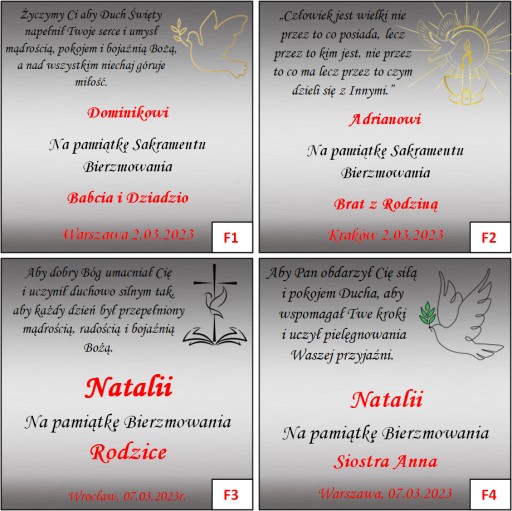 Życzymy Ci aby Duch Święty
napełnił Twoje serce i umysł
mądrością, pokojem i bojaźnią Bożą,
a nad wszystkim niechaj góruje
miłość.
Dominikowi
Na pamiątkę Sakramentu
Bierzmowania
Babcia i Dziadzio
Warszawa 2.03.2023
F1
„Człowiek jest wielki nie
przez to co posiada, lecz
przez to kim jest, nie przez
to co ma lecz przez to czym
dzieli się z Innymi.”
Adrianowi
Na pamiątkę Sakramentu
Bierzmowania
Brat z Rodziną
Kraków 2.03.2023
F2
Aby dobry Bóg umacniał Cię
i uczynił duchowo silnym tak,
aby każdy dzień był przepełniony
mądrością, radością i bojaźnią
Bożą.
Natalii
Na pamiątkę Bierzmowania
Rodzice
Wrocław, 07.03.2023r.
F3
Aby Pan obdarzył Cię siłą
i pokojem Ducha, aby
wspomagał Twe kroki
i uczył pielęgnowania
Waszej przyjaźni.
Natalii
Na pamiątkę Bierzmowania
Siostra Anna
Warszawa, 07.03.2023
F4